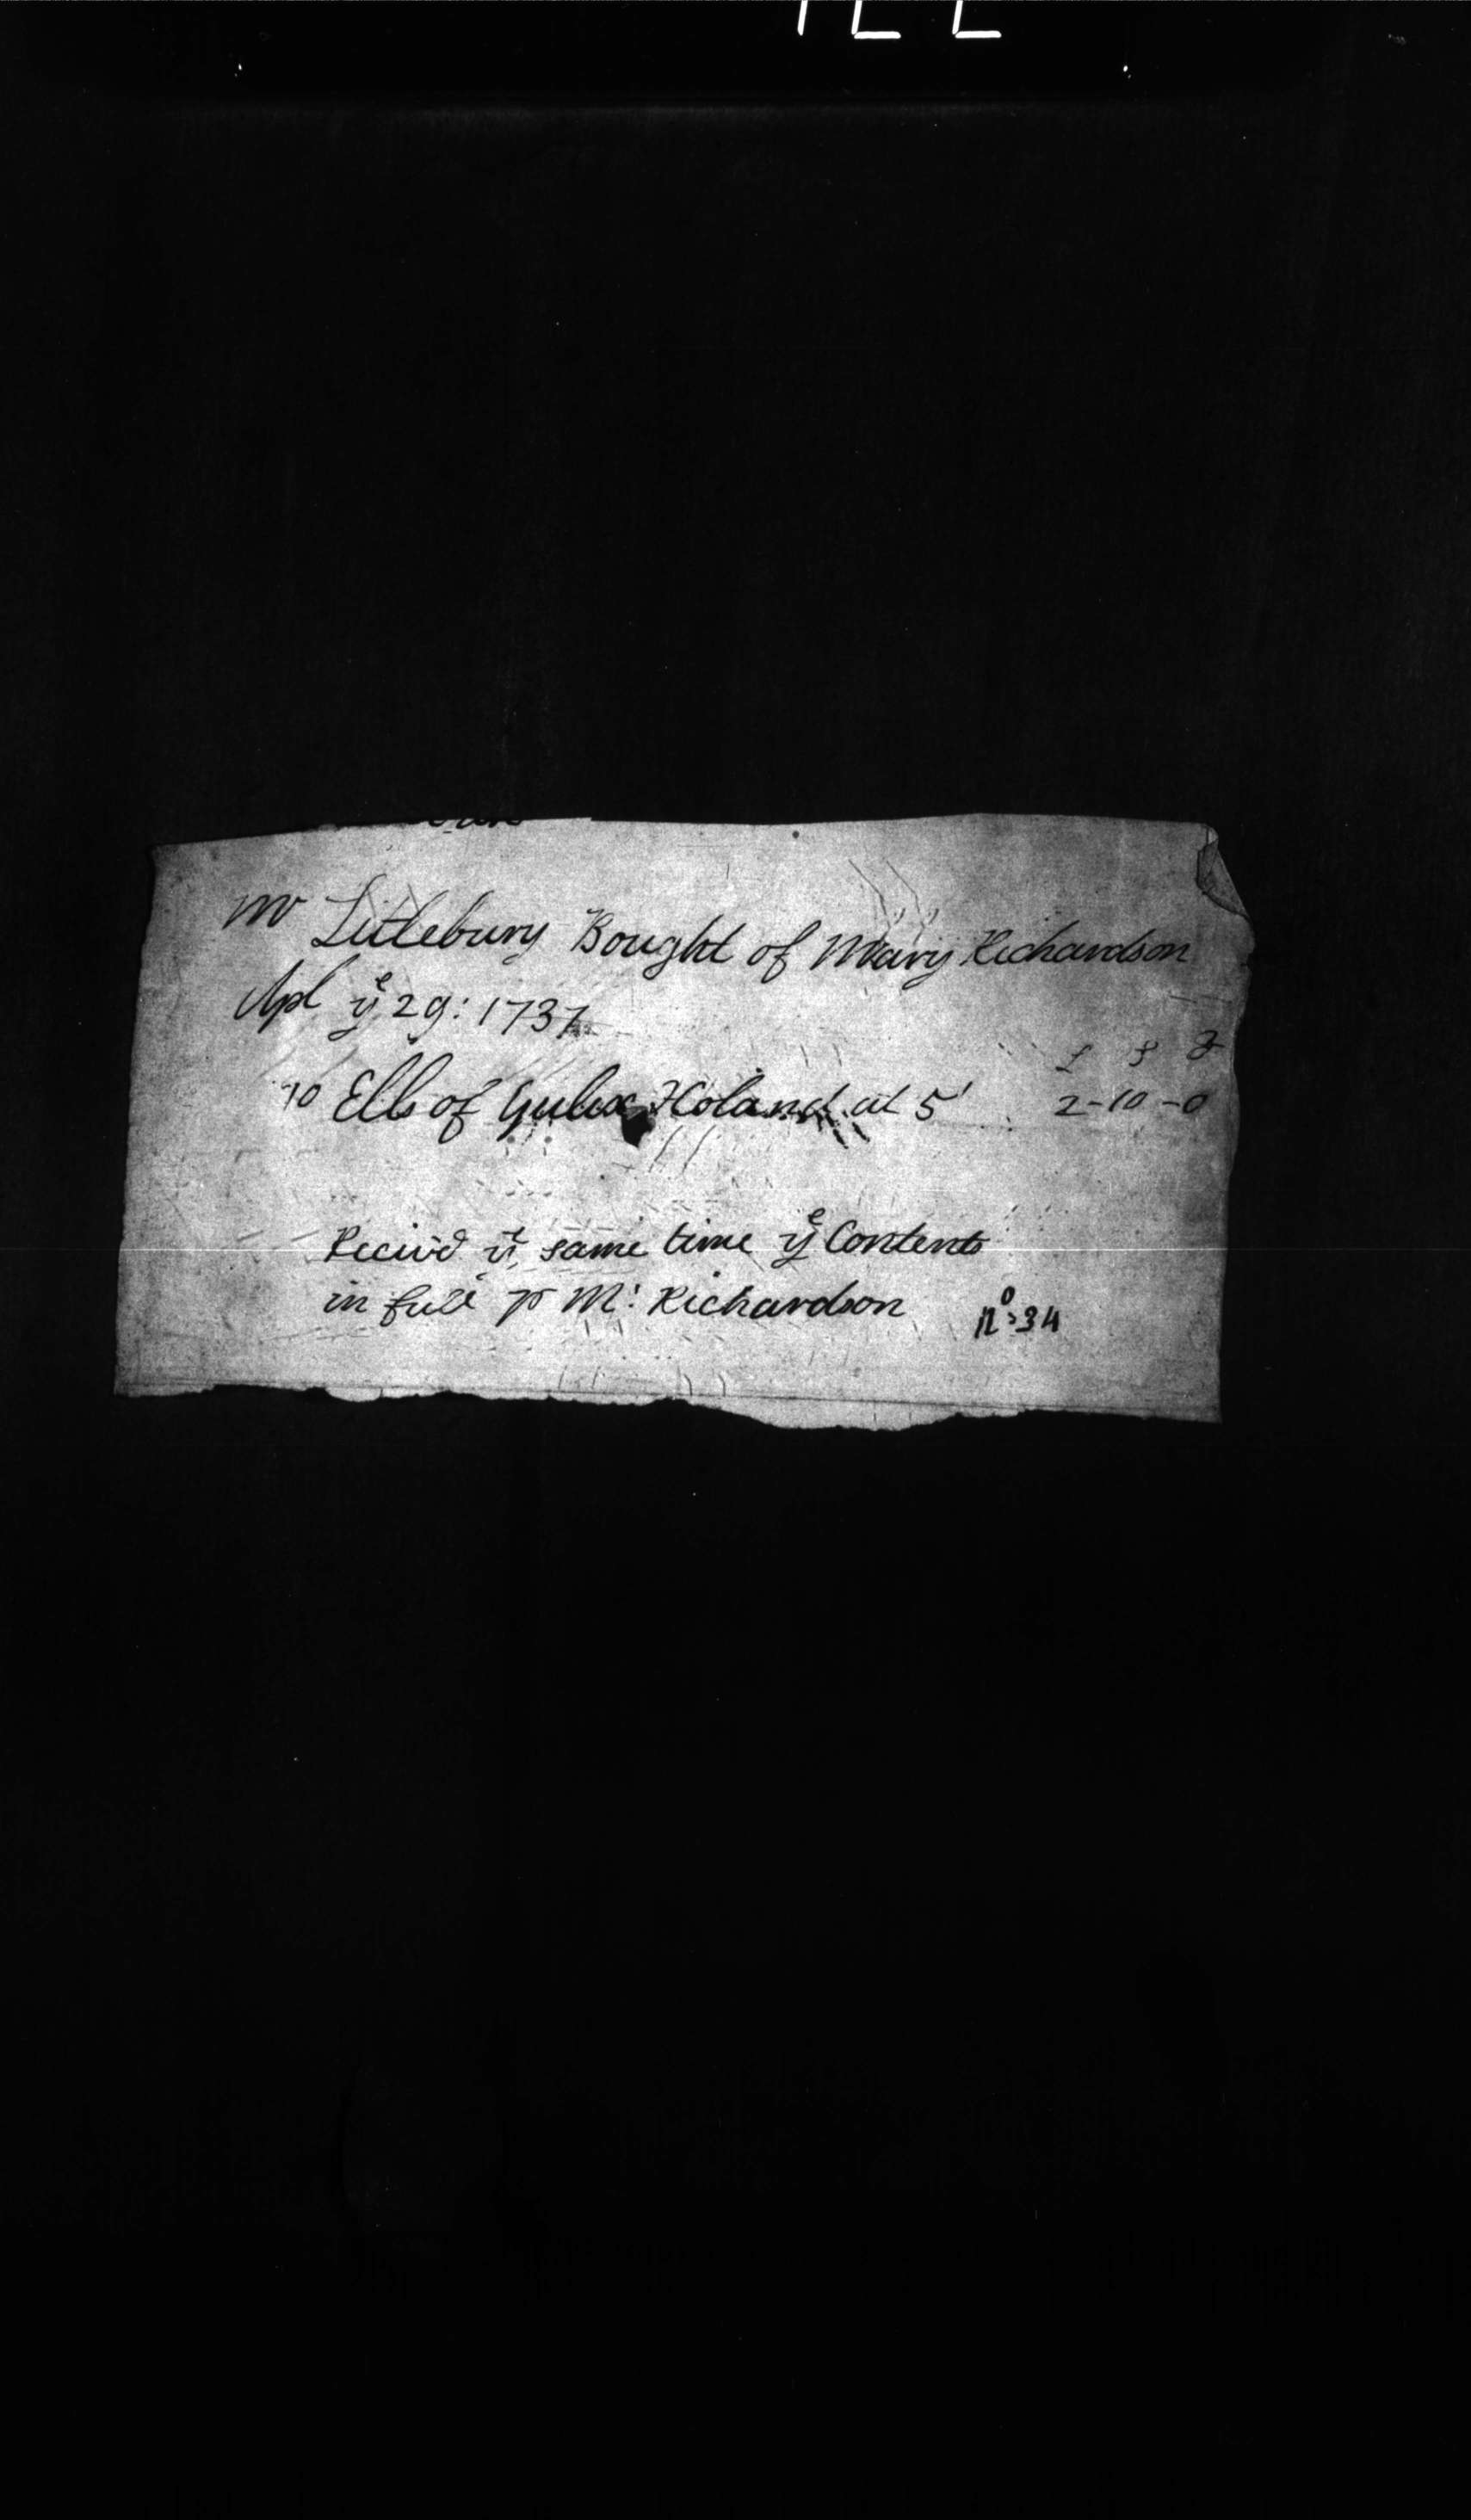 Mr Litlebury Bought of Mary Richardson
Apl ye 29: 1737
£ s d
10 Ells of Gulix Holand at 5' 2-10-0
Reciv'd ye same time ye Contents
in full p M: Richardson no: 34